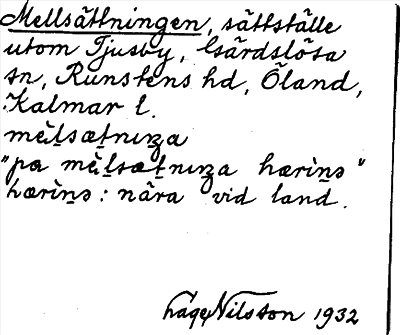 Mellsättningen, sättställe
utom Tjusby, Gärdslösa
sn, Runstens hd, Öland,
Kalmar l.
mèḷsæṯnıꞃa
"pa mèḷsæṯnıꞃa hærìṉs"
hærìṉs: nära vid land.
Låge Nilsson 1932